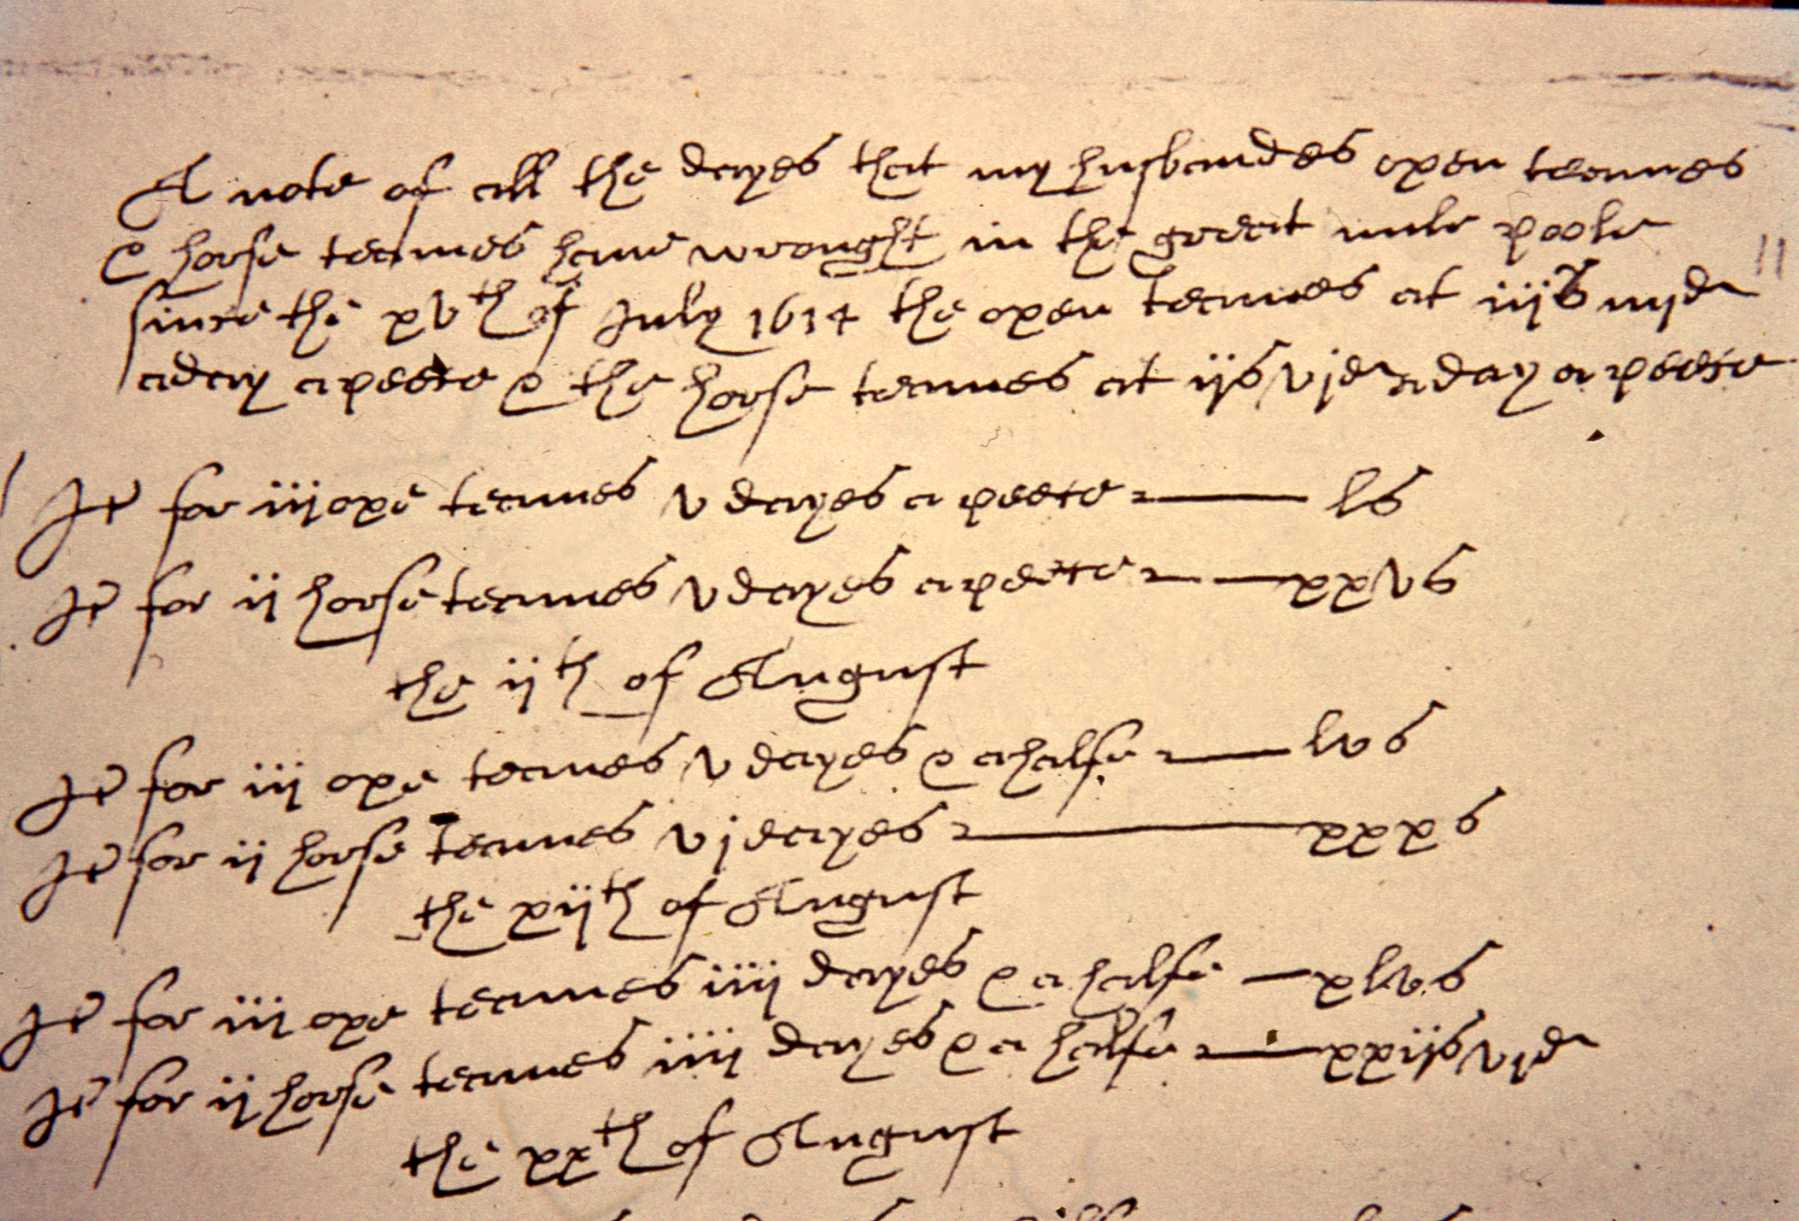 A note of all the dayes that my husbandes oxen teames
& horse teames haue wrought in the great mile poole
since the xvth of July 1614 the oxen teames at iijs iiijd
a day a peece & the horse teames at ijs vjd a day a peece
It for iij oxe teames v dayes a peece ls
It for ij horse teames v dayes a peece xxvs
the ijth of August
It for iij oxe teames v dayes & a halfe lvs
It for ij horse teames vj dayes xxxs
the xijth of August
It for iij oxe teames iiij dayes & a halfe xlvs
It for ij horse teames iiij dayes & a halfe xxijs vjd
the xxth of August